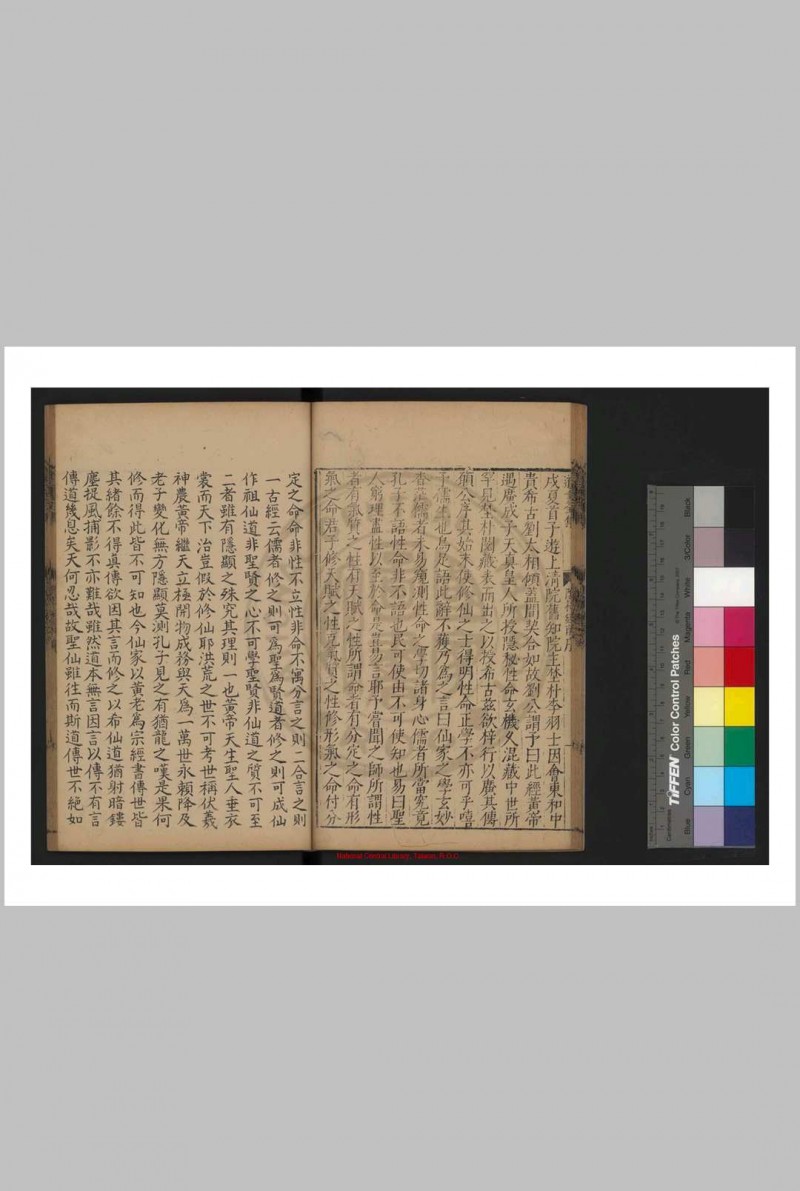 戊夏首予遊上清院舊知院主埜朴李羽士因會東和中
貴希古劉太相傾蓋間契合如故劉公謂予曰此經黃帝
遇廣成子天真皇人所授隱秘性命玄機久混藏中世所
罕見埜朴閱藏表而出之以授希古茲欲梓行以廣其傳
煩公序其始末使修仙之士得明性命正學不亦可乎嘻
予儒生也烏足語此辭不獲乃為之言曰仙家之學玄妙
杳茫儒者未易窺測性命之學切諸身心儒者所當究竟
孔子不語性命非不語也民可使由不可使知也易曰聖
人窮理盡性以至於命是豈易言耶予嘗聞之師所謂性
者有氣質之性有天賦之性所謂命者有分定之命有形
氣之命君子修天賦之性克氣質之性修形氣之命付分
定之命命非性不立性非命不寓分言之則二合言之則
一古經云儒者修之則可為聖為賢道者修之則可成仙
作祖仙道非聖賢之心不可學聖賢非仙道之質不可至
二者雖有隱顯之殊究其理則一也黃帝天生聖人垂衣
裳而天下治豈假於修仙耶洪荒之世不可考世稱伏羲
神農黃帝繼天立極開物成務與天為一萬世永賴降及
老子變化無方隱顯莫測孔子見之有猶龍之嘆是果何
修而得此皆不可知也今仙家以黃老為宗經書傳世皆
其緒餘不得真傳欲因其言而修之以希仙道猶射暗鏤
塵捉風捕影不亦難哉雖然道本無言因言以傳不有言
傳道幾息矣天何忍哉故聖仙雖往而斯道傳世不絕如
National Central Library, Taiwan, R.O.C.
TIFFEN Color Control Patches
Blue
Cyan
Green
Yellow
Red
Magenta
White
3/Color
Black